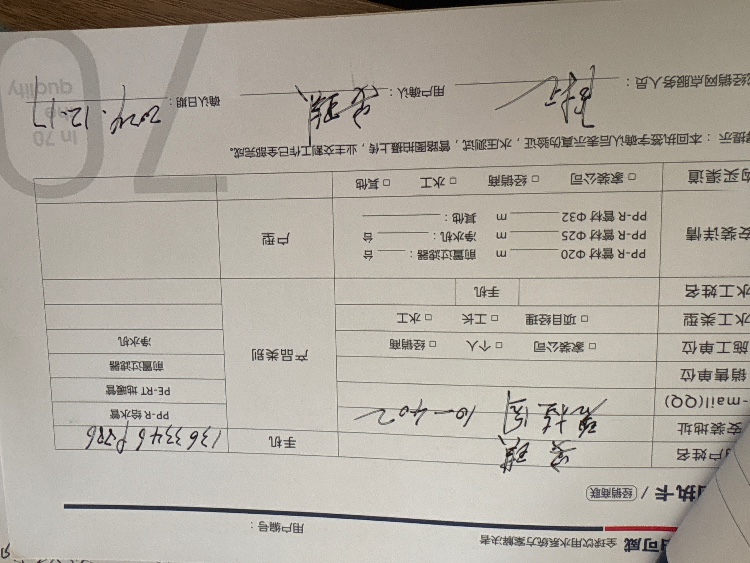 可威 全球饮用水系统方案解决者
用户编号：
执卡 / 经销商联
户姓名
手机
安装地址 10-402
-mail(QQ)
销售单位
施工单位 □ 家装公司 □ 个人 □ 经销商
水工类型 □ 项目经理 □ 工长 □ 水工
水工姓名 手机
产品类别
PP-R 给水管
PE-RT 地暖管
前置过滤器
净水机
安装详情
PP-R 管材 Φ20 m 前置过滤器： 台
PP-R 管材 Φ25 m 净水机： 台
PP-R 管材 Φ32 m 其他：
户型
购买渠道 □ 家装公司 □ 经销商 □ 水工 □ 其他
提示：本回执签字确认后表示真伪验证，水压测试，管路图拍摄上传，业主交割工作已全部完成。
经销网点服务人员： 用户确认： 确认日期：2024.12.17
In 70
quality